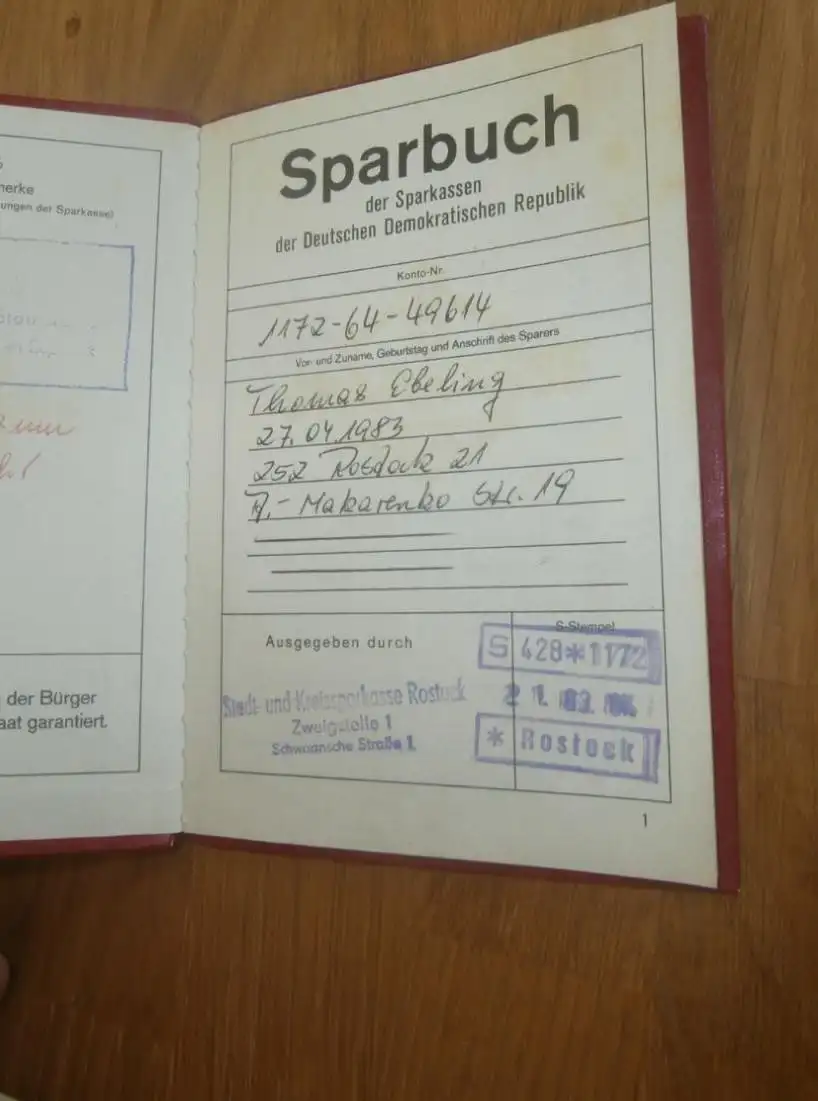 merke
ungen der Sparkasse)
der Bürger
aat garantiert.
Sparbuch
der Sparkassen
der Deutschen Demokratischen Republik
Konto-Nr.
1172-64-49614
Vor- und Zuname, Geburtstag und Anschrift des Sparers
Thomas Ebeling
27.04.1983
252 Rostock 21
A.- Makarenko Str. 19
Ausgegeben durch
S-Stempel
S 428*1172
Stadt- und Kreissparkasse Rostock
Zweigstelle 1
Schwaansche Straße 1
* Rostock
1